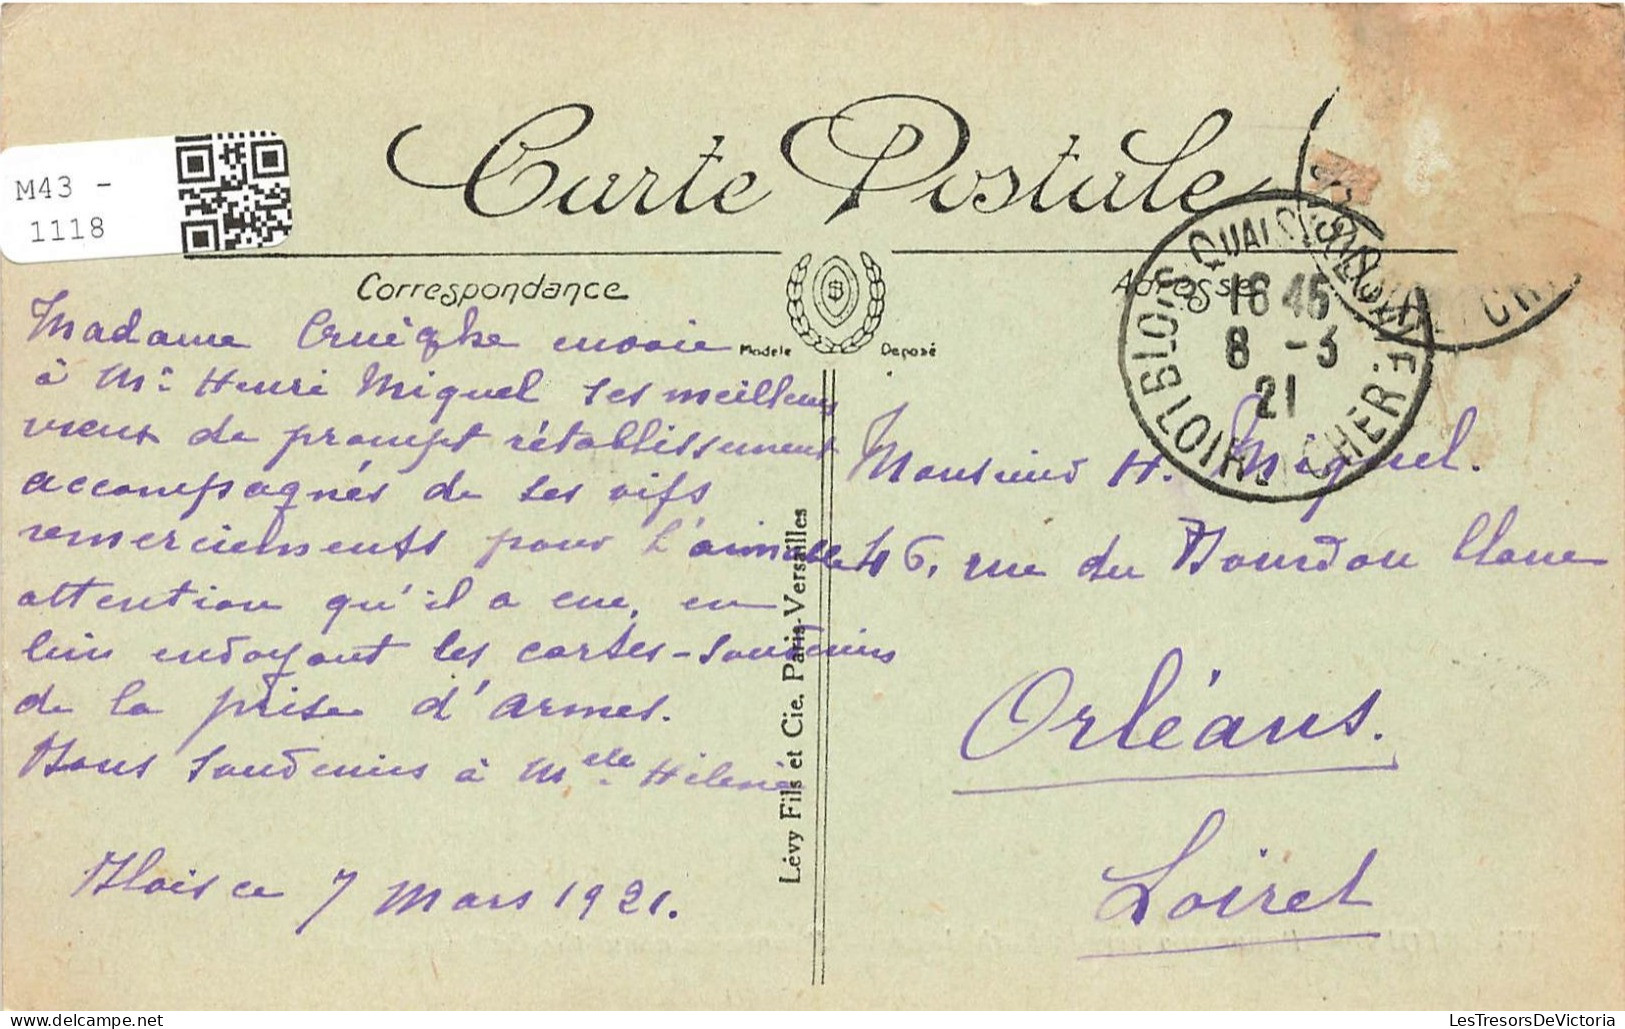 M43 -
1118
Carte Postale
Correspondance
Adresse
Modèle Déposé
Madame envoie
à Mr Henri Miguel ses meilleurs
vœux de prompt rétablissement
accompagnés de ses vifs
remerciements pour l'aimable
attention qu'il a eue, en
lui envoyant les cartes-souvenirs
de la prise d'Armes.
Bons souvenirs à Mlle Hélène
Blois ce 7 Mars 1921.
Lévy Fils et Cie. Paris-Versailles
BLOIS QUAI
16 45
8 -3
21
LOIR CHER
Monsieur H. Miguel.
46, rue du Bourdon Blanc
Orléans.
Loiret
LesTresorsDeVictoria